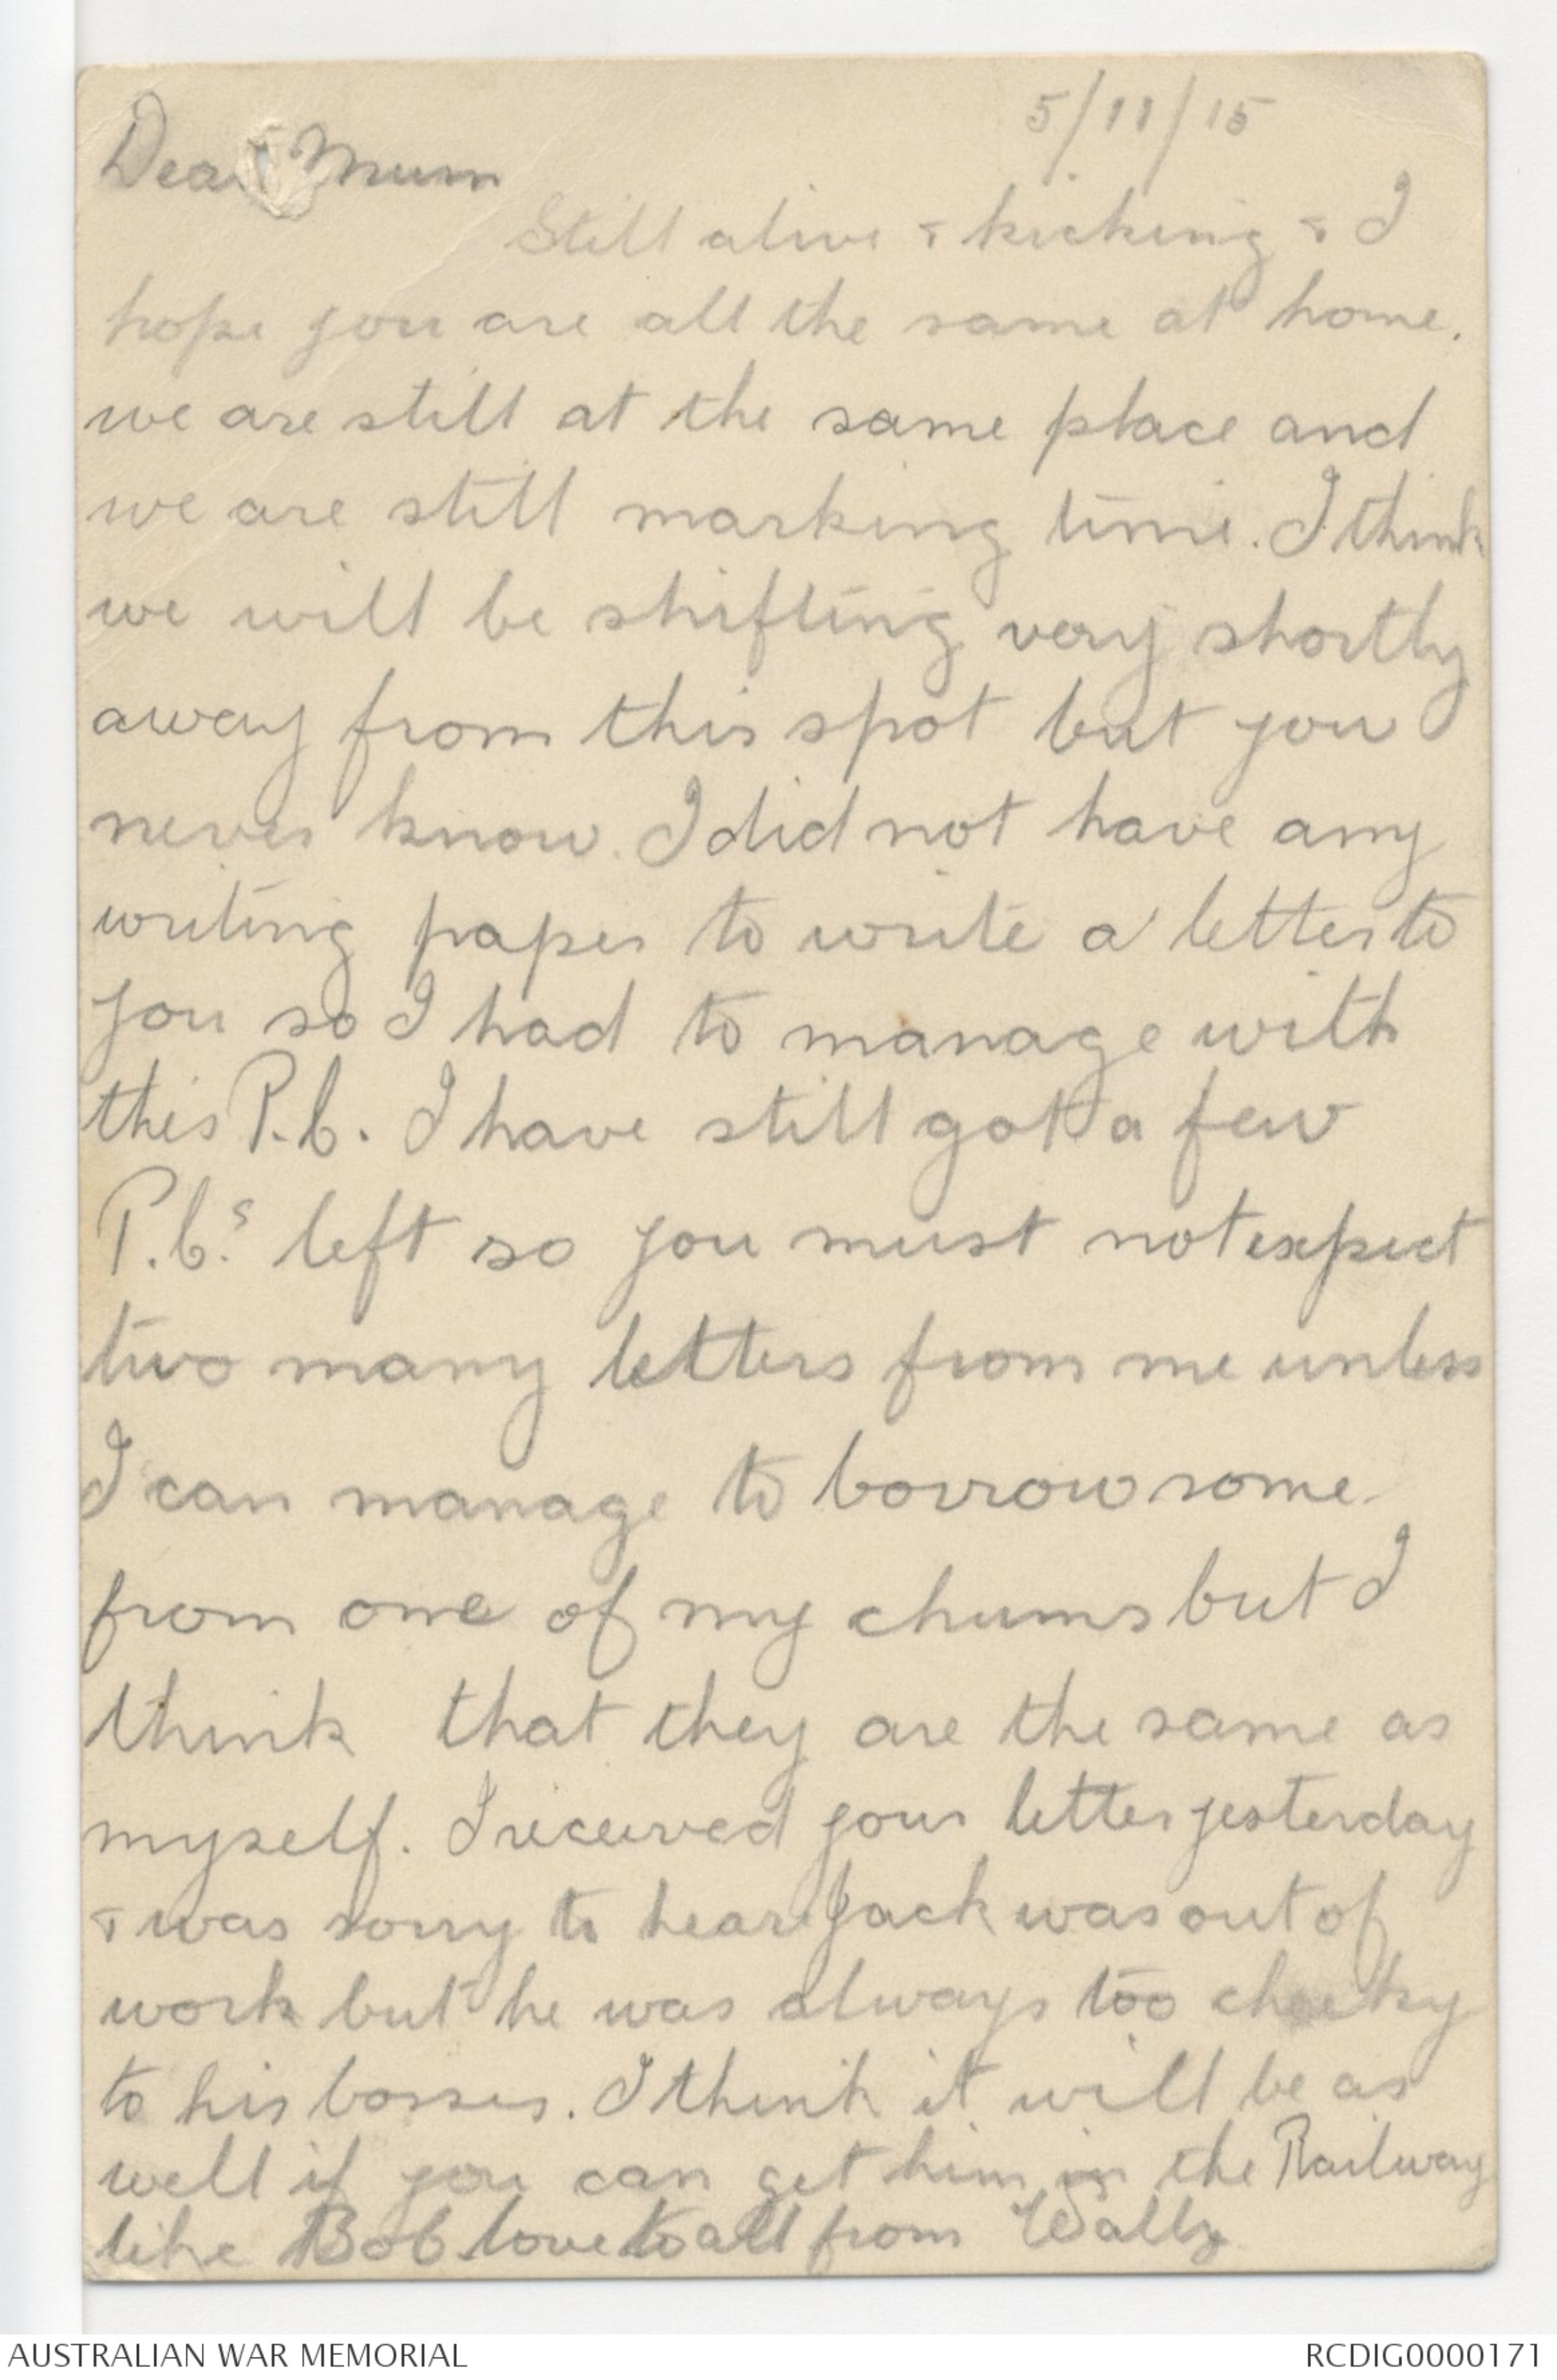 5/11/15
Dear Mum
Still alive & kicking & I
hope you are all the same at home.
we are still at the same place and
we are still marking time. I think
we will be shifting very shortly
away from this spot but you
never know. I did not have any
writing paper to write a letter to
you so I had to manage with
this P.C. I have still got a few
P.C.s left so you must not expect
two many letters from me unless
I can manage to borrow some
from one of my chums but I
think that they are the same as
myself. I received your letter yesterday
& was sorry to hear Jack was out of
work but he was always too cheeky
to his bosses. I think it will be as
well if you can get him in the Railway
like Bob love to all from Wally
AUSTRALIAN WAR MEMORIAL
RCDIG0000171